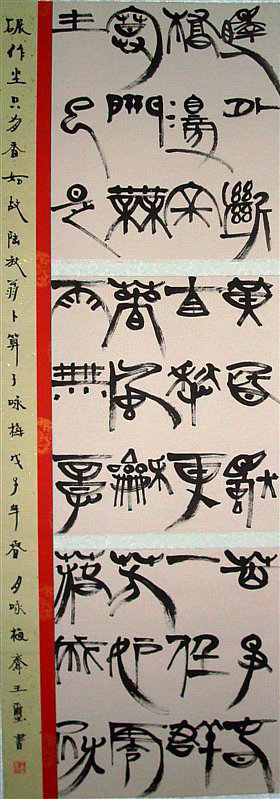 驛外斷
橋邊寂
寞開無
主已是
黃昏獨
自愁更
著風和
雨無意
苦爭春
一任群
芳妒零
落成泥
碾作尘只有香如故陸放翁卜算子咏梅戊子年春月咏梅齋王璽書